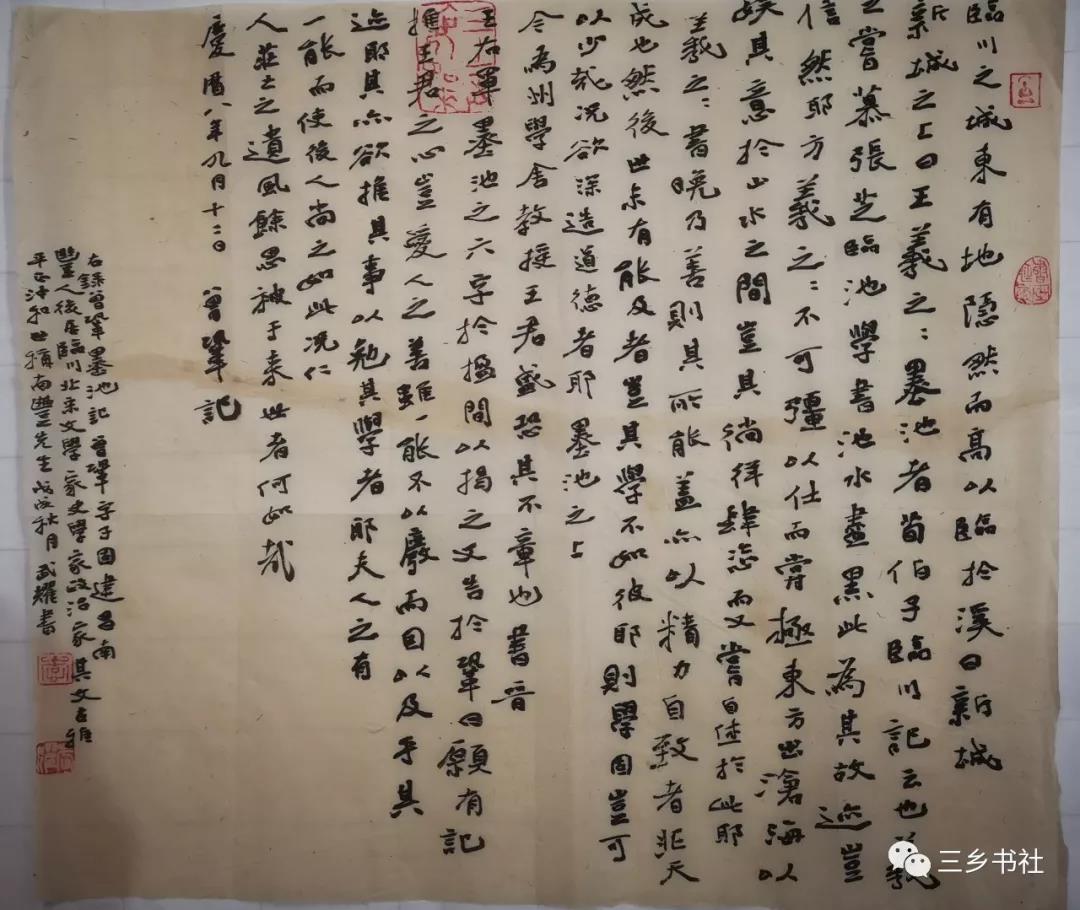 臨川之城東有地隱然而高以臨於溪曰新城
新城之上曰王羲之:墨池者荀伯子臨川記云也羲
之嘗慕張芝臨池學書池水盡黑此為其故迹豈
信然耶方羲之:不可彊以仕而嘗極東方出滄海以
娛其意於山水之間豈其徜徉肆恣而又嘗自休於此耶
羲之:書晚乃善則其所能蓋亦以精力自致者非天
成也然後世未有能及者豈其學不如彼耶則學固豈可
以少哉况欲深造道德者耶墨池之上
今為州學舍教授王君盛恐其不章也書晉
王右軍墨池之六字於楹間以揭之又告於鞏曰願有記
推王君之心豈愛人之善雖一能不以廢而因以及乎其
迹耶其亦欲推其事以勉其學者耶夫人之有
一能而使後人尚之如此况仁
人莊士之遺風餘思被于來世者何如哉
慶曆八年九月十二日 曾鞏記
右錄曾鞏墨池記曾鞏字子固建昌南
豐人後居臨川北宋文學家史學家政治家其文
平正冲和世稱南豐先生戊戌秋月武耀書
三乡书社